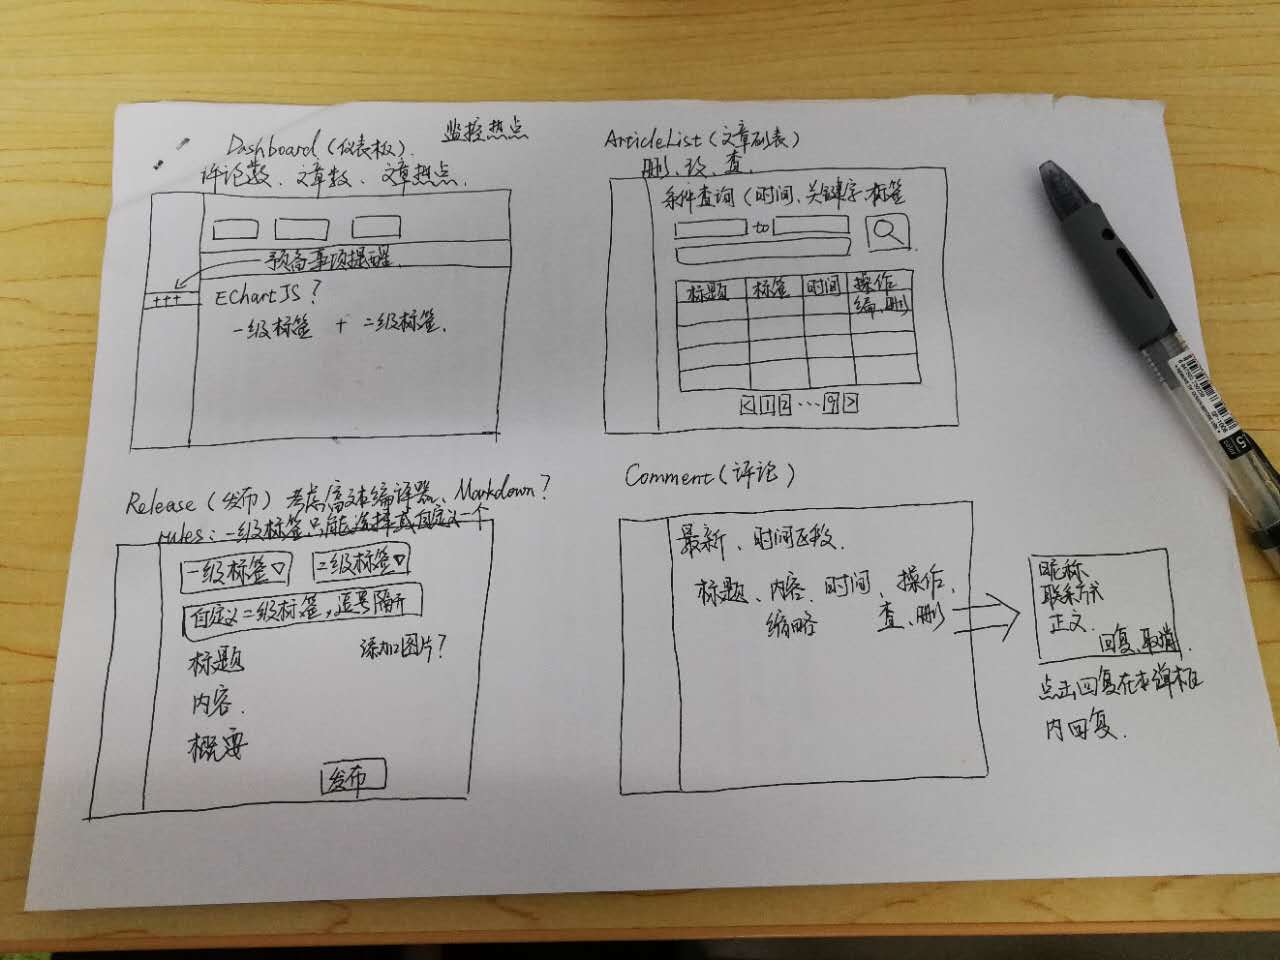 监控热点
Dashboard（仪表板）.
评论数、文章数、文章热点.
预备事项提醒.
+++
EChartJS？
一级标签 + 二级标签.
ArticleList（文章列表）
删、改、查.
条件查询（时间、关键字、标签
to
标题 标签 时间 操作
编、删
< 1 2 … 9 >
Release（发布）考虑富文本编译器、Markdown？
rules：一级标签只能选择或自定义一个
一级标签▽ 二级标签▽
自定义二级标签，逗号隔开
标题 添加图片？
内容.
概要
发布
Comment（评论）
最新、时间函数.
标题、内容、时间、操作.
缩略 查、删
昵称
联系方式
正文.
回复、取消.
点击回复在本弹框
内回复.